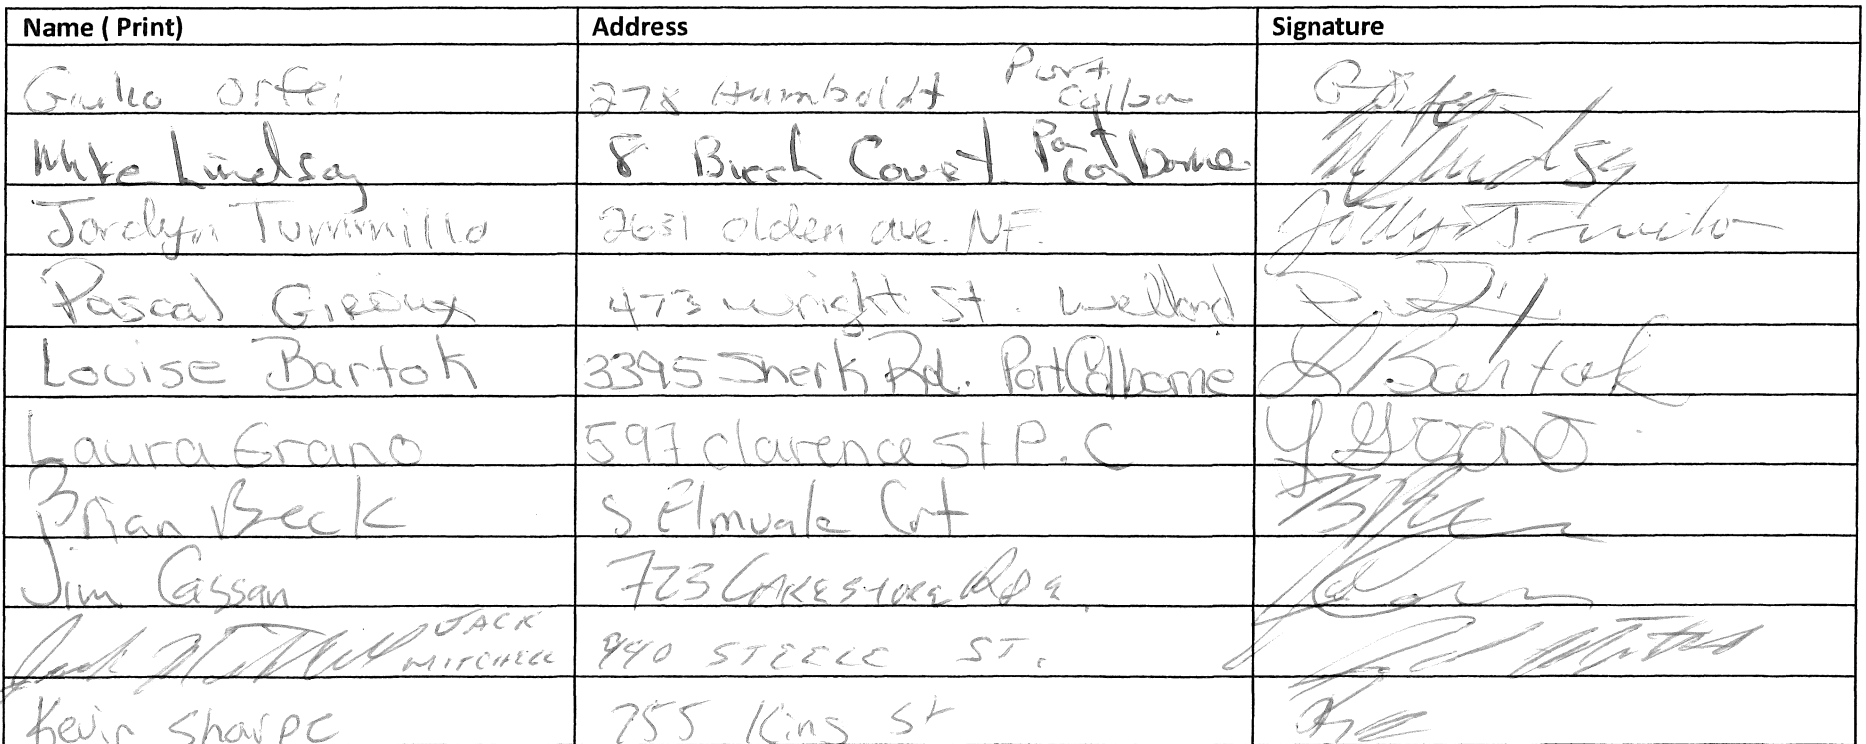 Name ( Print) Address Signature
Giulio Orfei 278 Humboldt Port Colborne
Mike Lindsay 8 Birch Court Port Colborne M Lindsay
Jordyn Tummillo 2631 olden ave. NF.
Pascal Giroux 473 wright St. Welland
Louise Bartok 3395 Sherk Rd. Port Colborne L Bartok
Laura Grano 597 clarence St P.C L Grano
Brian Beck 5 Elmvale Crt
Jim Cassan 723 LAKESHORE RD E.
Jack Mitchell JACK MITCHELL 440 STEELE ST. Jack Mitchell
Kevin Sharpe 255 King St